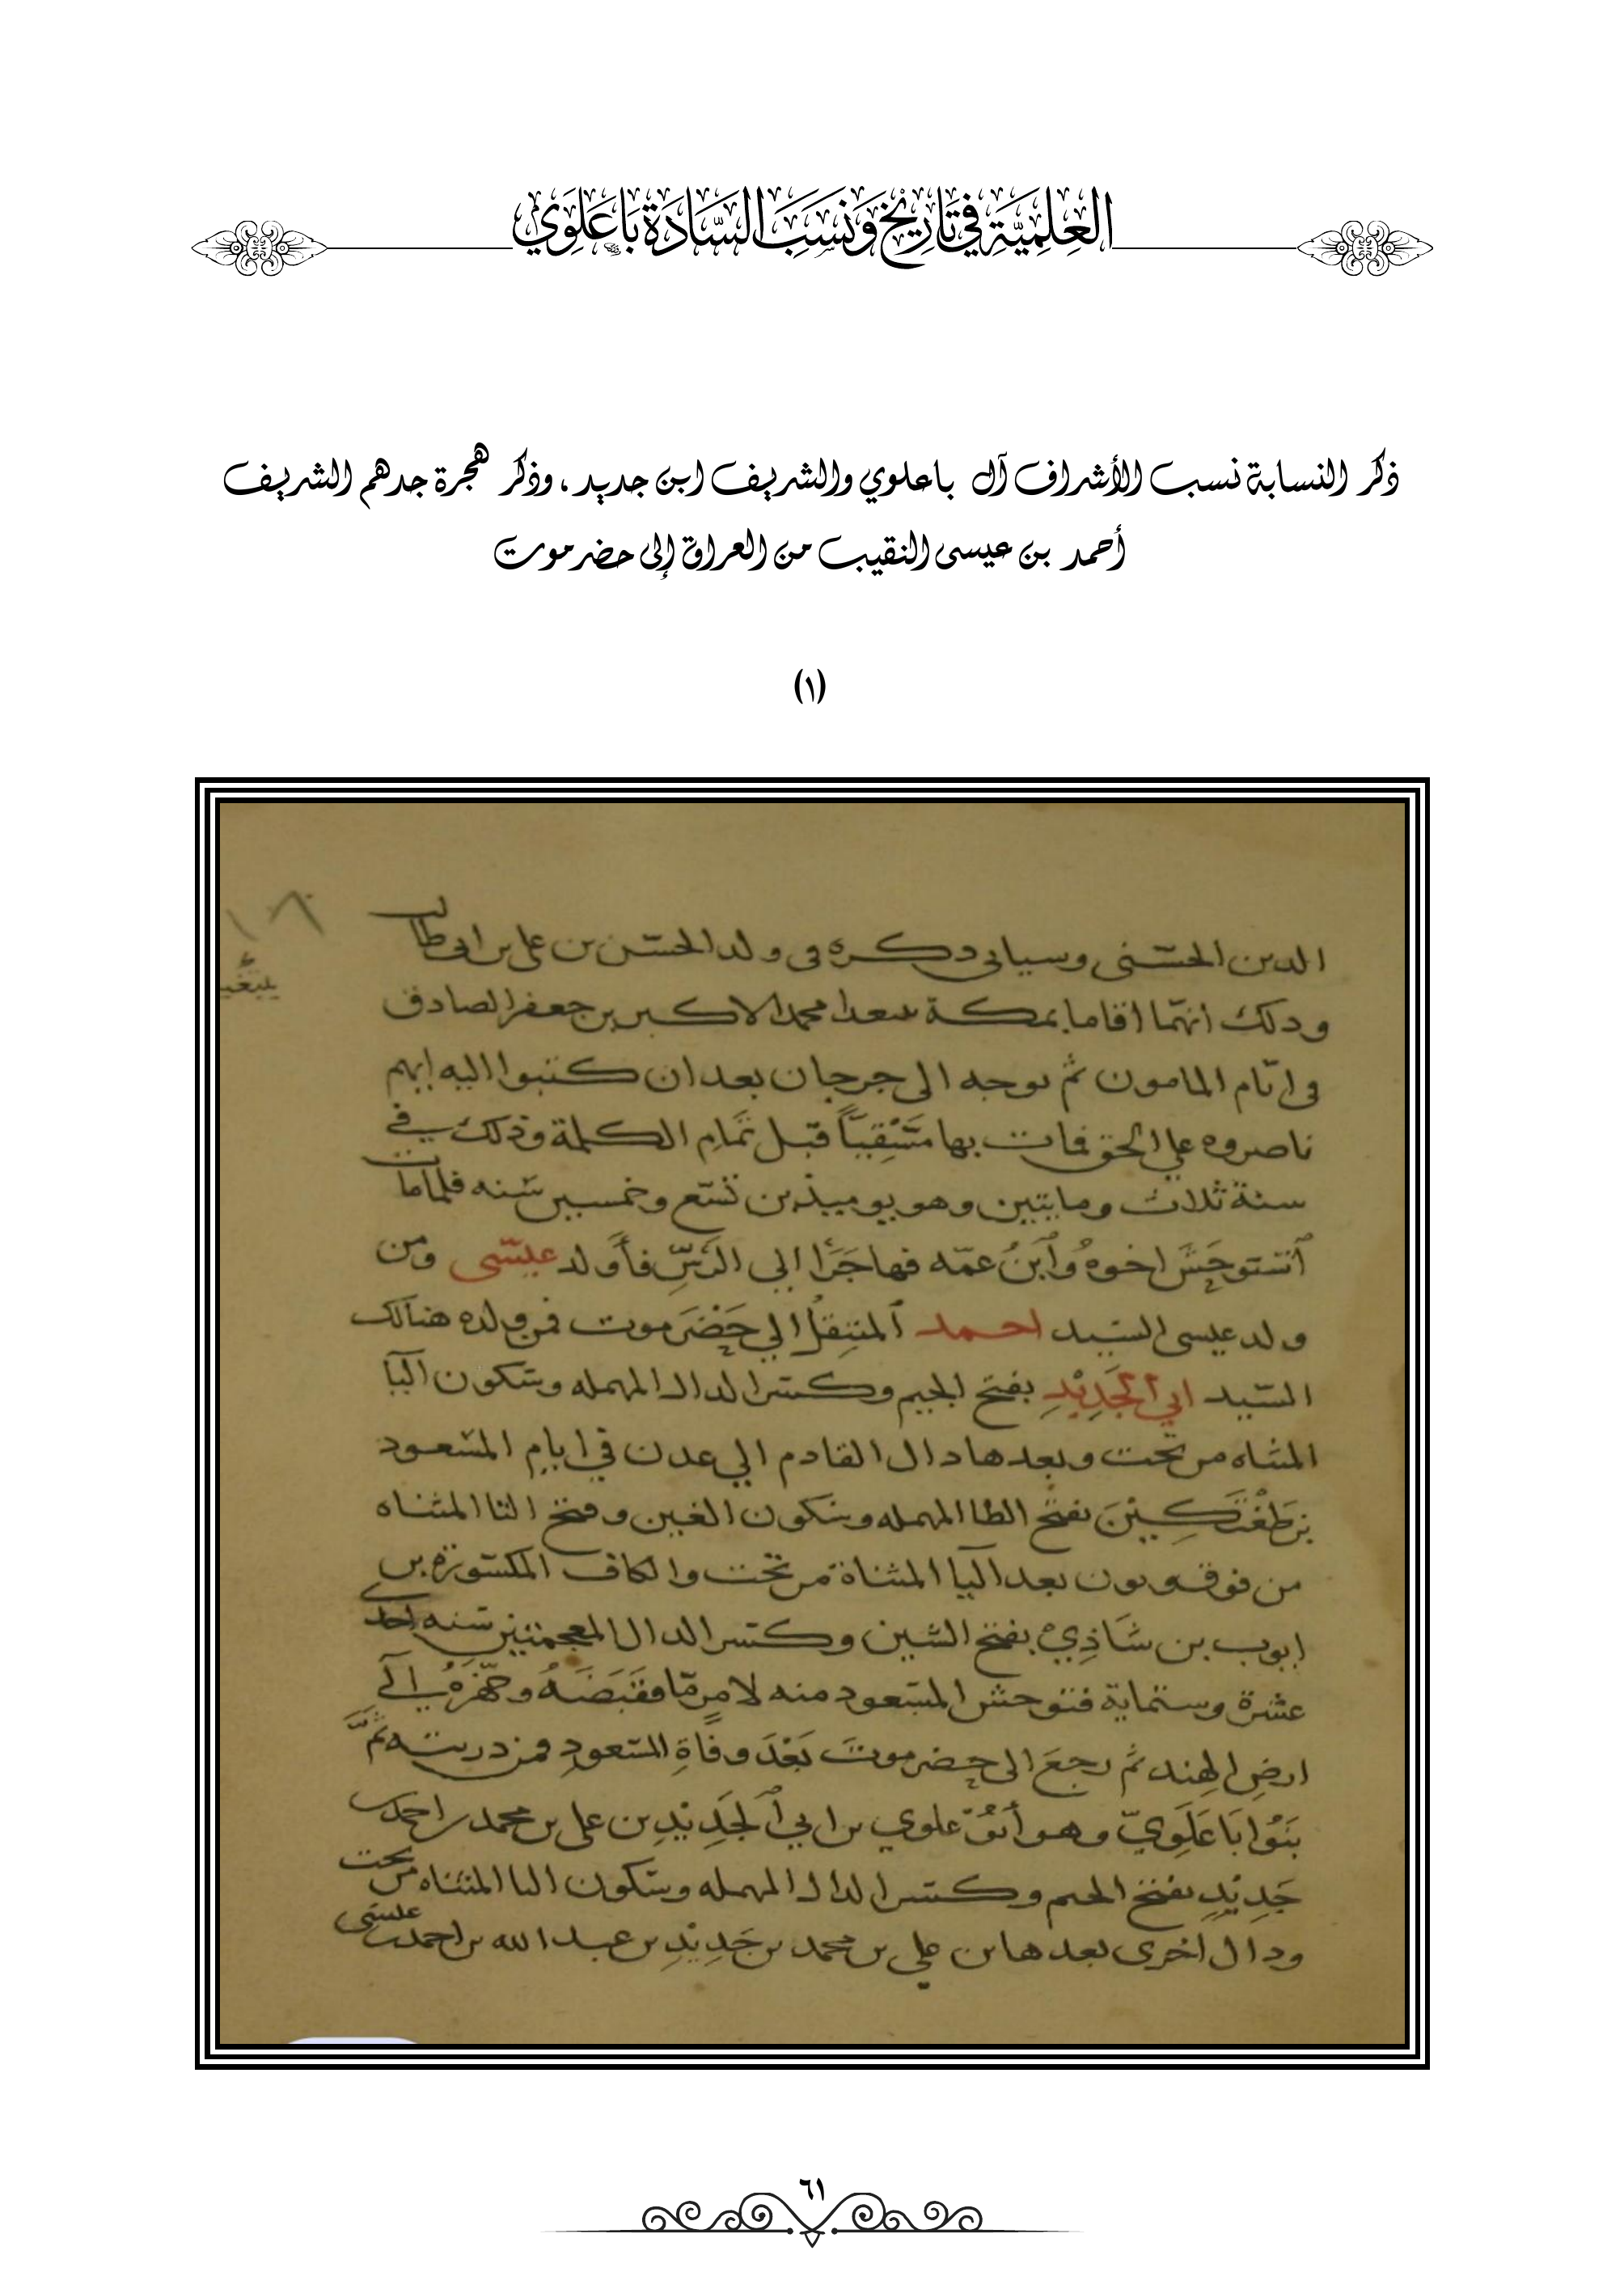 العِلمِيَّة في تَارِيْخ وَنَسَبِ السَّادَة بَاعَلَوِي
ذكر النسابة نسب الأشراف آل باعلوي والشريف ابن جديد، وذكر هجرة جدهم الشريف
أحمد بن عيسى النقيب من العراق إلى حضرموت
(١)
الدين الحسنى وسياتى ذكره فى ولد الحسن بن على بن ابى طالب
وذلك انهما اقاما بمكة محمد الاكبر بن جعفر الصادق
فى ايام المامون ثم توجه الى جرجان بعد ان كتبوا اليه انهم
ناصروه علي الحق فمات بها قبل تمام الكلمة وذلك في
سنة ثلاث ومايتين وهو يوميذ بن تسع وخمسين سنه فلما مات
ٱستوحَشَ اخوهُ وٱبنُ عمّه فهاجَرَا الي الرَسِّ فأولد عيسَى ومن
ولد عيسى السيد احمد ٱلمنتقِلُ الي حَضْرَموت فمن ولده هنالك
السيد ابي ٱلجَدِيْدِ بفتح الجيم وكسر الدال المهمله وسكون اليا
المثناه من تحت وبعدها دال القادم الي عدن في ايام المسعود
بن طَغْتَكِيْنَ بفتح الطا المهمله وسكون الغين وفتح التا المثناه
من فوق ونون بعد اليا المثناة من تحت والكاف المكسورة بن
ايوب بن شَاذِي بفتح الشين وكسر الدال المعجمتين سنه احدى
عشرة وستماية فتوحش المسعود منه لامرٍ مّا فقَبَضَهُ وجهّزهُ الي
ارضِ الهند ثم رجعَ الى حضرموتَ بَعْدَ وفاةِ المسعودِ فمن ذريته ثَمَّ
بَنُوا بَاعَلَوِيّ وهو أبُوْ علوي بن ابي ٱلجَدِيْدِ بن على بن محمد بن احمد بن
جَدِيْدِ بفتح الجيم وكسر الدال المهمله وسكون اليا المثناه من تحت
ودال اخرى بعدها بن علي بن محمد بن جَدِيْدِ بن عبد الله بن احمد بن عيسى
٦١